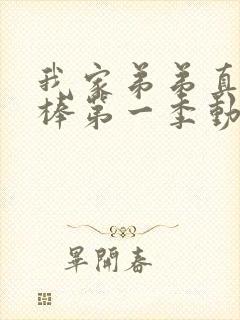 我家弟弟真
棒第一季動
畢開春